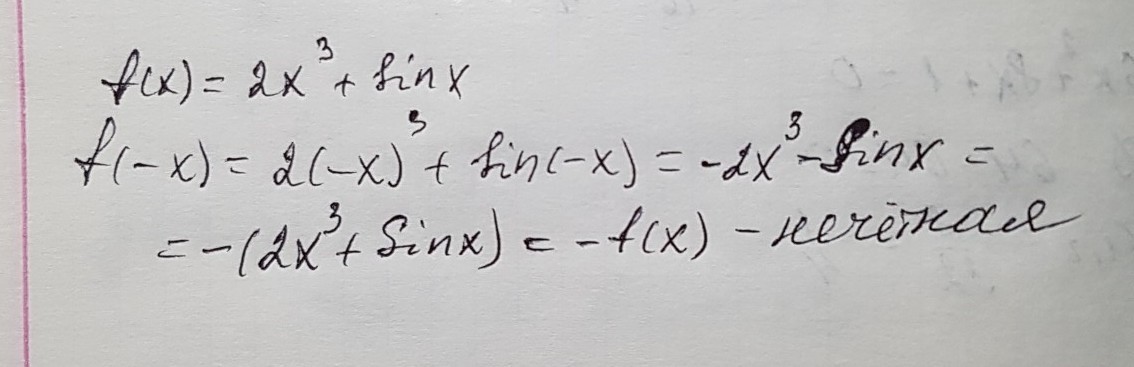 f(x) = 2x³ + sin x
f(-x) = 2(-x)³ + sin(-x) = -2x³ - sin x =
= -(2x³ + Sin x) = -f(x) - нечётная